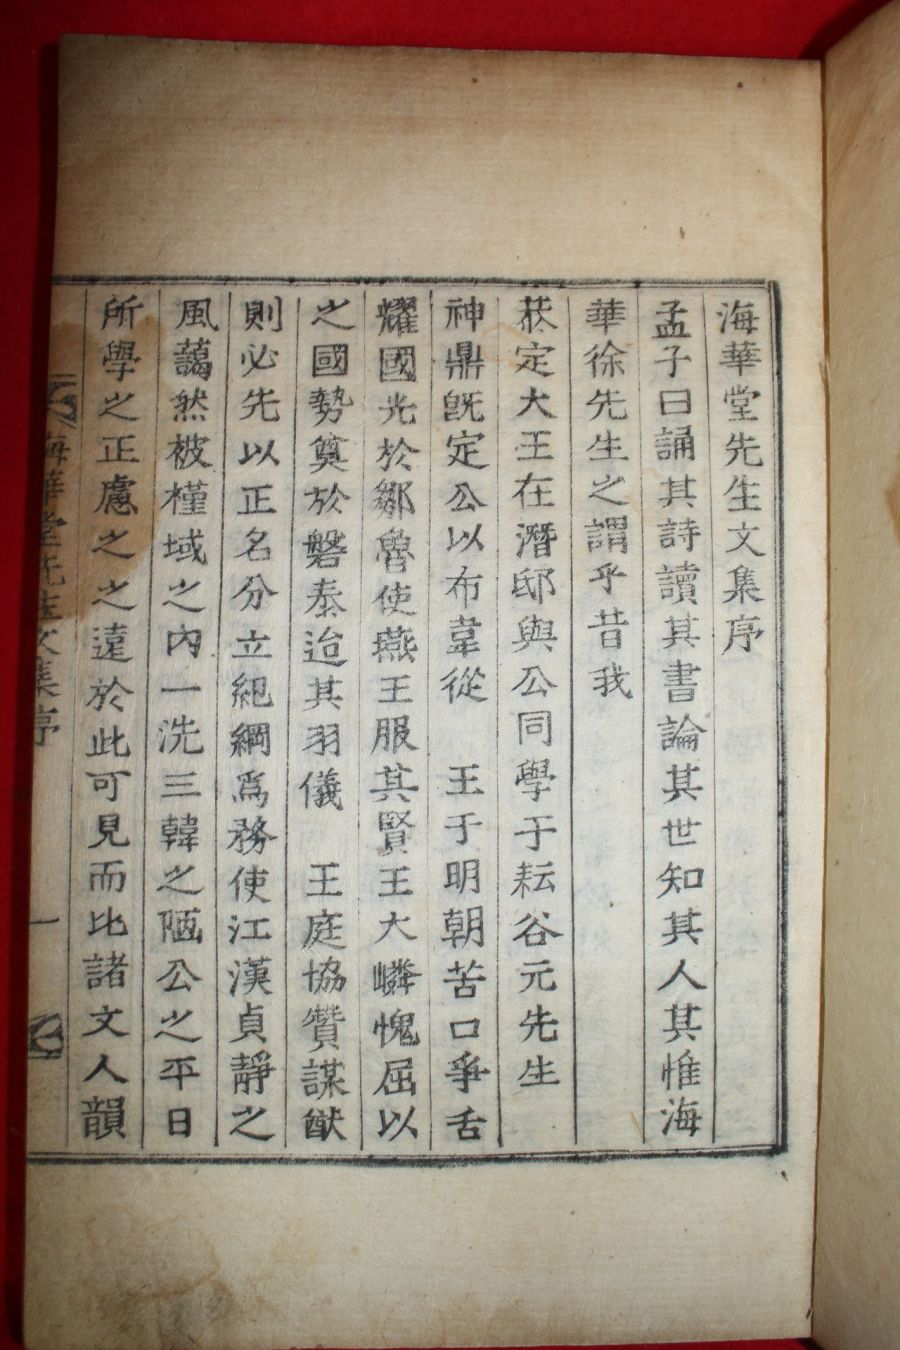 海華堂先生文集序
孟子曰誦其詩讀其書論其世知其人其惟海
華徐先生之謂乎昔我
恭定大王在潛邸與公同學于耘谷元先生
神鼎旣定公以布韋從　王于明朝苦口爭舌
耀國光於鄒魯使燕王服其賢王大嶙愧屈以
之國勢奠於磐泰迨其羽儀　王庭協贊謀猷
則必先以正名分立紀綱爲務使江漢貞靜之
風藹然被槿域之內一洗三韓之陋公之平日
所學之正慮之之遠於此可見而比諸文人韻
海華堂先生文集序　一